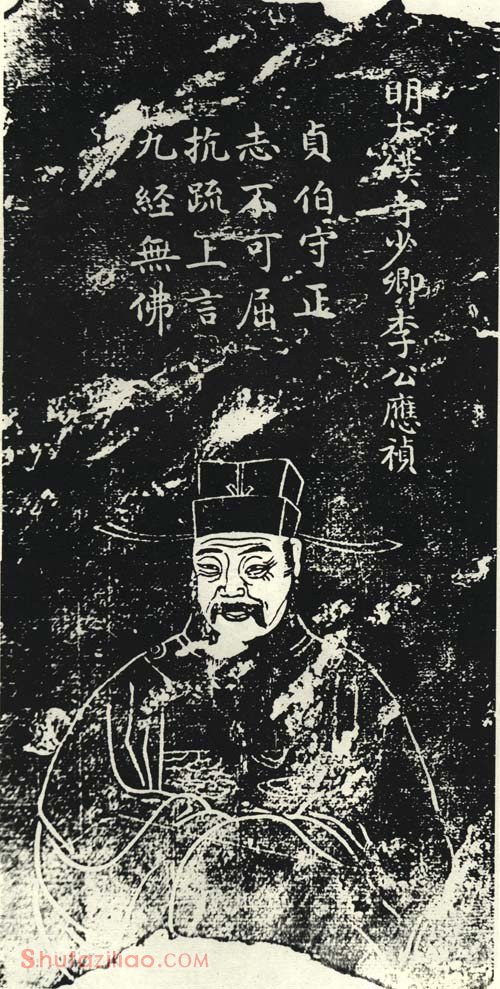 明太僕寺少卿李公應禎
貞伯守正
志不可屈
抗疏上言
九經無佛
Shufaziliao.COM